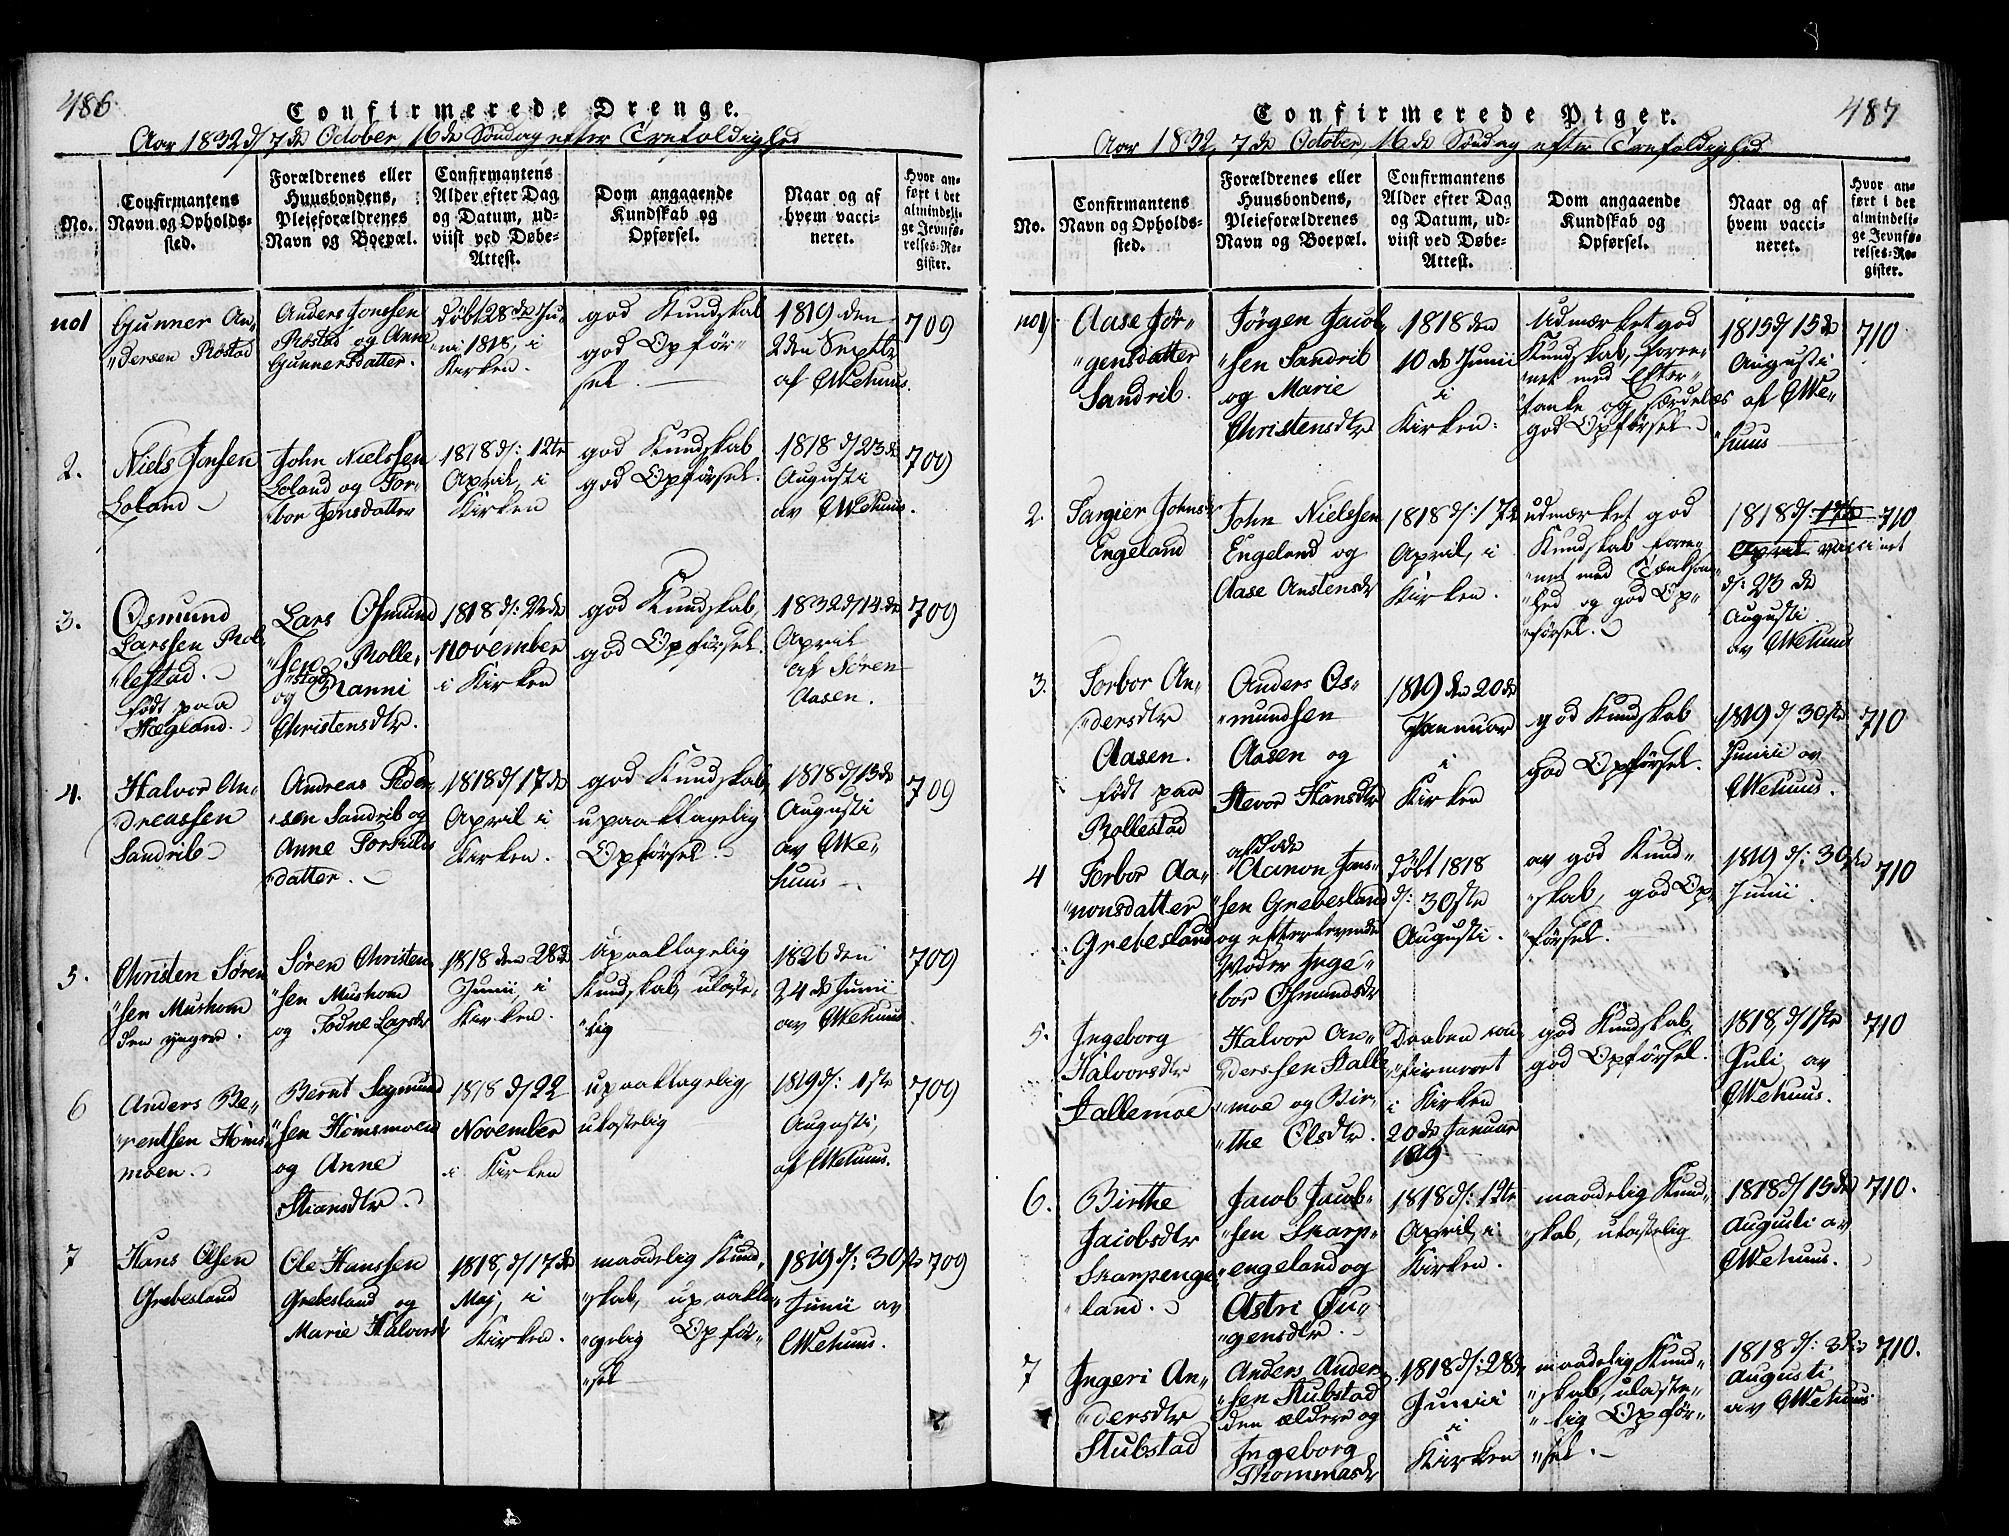 486
Confirmerede Drenge.
Aar 1832 d/ 7de October, 16de Søndag efter Trefoldighed
No.
Confirmantens
Navn og Opholds-
sted.
Forældrenes eller
Huusbondens,
Pleieforældrenes
Navn og Boepæl.
Confirmantens
Alder efter Dag
og Datum, ud-
viist ved Døbe-
Attest.
Dom angaaende
Kundskab og
Opførsel.
Naar og af
hvem vacci-
neret.
Hvor an-
ført i det
almindeli-
ge Jevnfø-
relses-Re-
gister.
no1
Gunner An-
"dersen Røstad
Anders Jonssen
Røstad og Anne
Gunnersdatter.
døbt 28de Ju-
"ni 1818, i
Kirken.
god Kundskab
god Opfør-
sel.
1819 den
2den Septbr
af Wehuus.
709
2.
Niels Jonsen
Loland
John Nielssen
Loland og Tor-
"bor Jensdatter
1818 d/: 12te
April, i
Kirken
god Kundskab
god Opførsel.
1818 d/ 23de
Augusti
av Wehuus.
709
3.
Osmund
Larssen Rol-
"lestad.
født paa
Hægland.
Lars Osmund
"sen Rolle-
"stad
og Nanni
Christensdtr.
1818 d/: 22de
November
i Kirken
god Kundskab,
god Opførsel.
1832 d/ 14de
April
af Søren
Aasen.
709
4.
Halvor An-
"dreassen
Sandrib
Andreas Peder-
"sen Sandrib og
Anne Torkilds
datter.
1818 d/ 17de
April i
Kirken.
god Kundskab,
upaaklagelig
Opførsel.
1818 d/ 15de
Augusti
av We-
huus
709
5.
Christen Søren
"sen Mushom
den yngre.
Søren Christen
"sen Mushom
og Todne Larsdr
1818 den 28de
Junii, i
Kirken.
Upaaklagelig
Kundskab, ulaste-
"lig
1826 den
24de Junii
av Wehuus
709
6
Anders Be-
"rentsen Høms-
moen.
Bernt Segmund
"sen Hømsmoen
og Anne
Stiansdtr.
1818 d/ 22
November
i Kirken
upaaklagelig,
ulastelig
1819 d/: 1ste
Augusti,
af Wehuus.
709
7
Hans Olsen
Grebesland
Ole Hanssen
Grebesland og
Marie Halvorsdr
1818, d/ 17de
Maj, i
Kirken.
maadelig Kund-
"skab, upaakla-
"gelig Opfør-
"sel
1819 d/: 30te
Junii av
Wehuus.
709
487
Confirmerede Piger.
Aar 1832, 7de October, 16de Søndag efter Trefoldighed
No.
Confirmantens
Navn og Opholds-
sted.
Forældrenes eller
Huusbondens,
Pleieforældrenes
Navn og Boepæl.
Confirmantens
Alder efter Dag
og Datum, ud-
viist ved Døbe-
Attest.
Dom angaaende
Kundskab og
Opførsel.
Naar og af
hvem vacci-
neret.
Hvor an-
ført i det
almindeli-
ge Jevnfø-
relses-Re-
gister.
no1
Aase Jør-
"gensdatter
Sandrib.
Jørgen Jacob-
"sen Sandrib
og Marie
Christensdtr
1818 den
10de Junii
i
Kirken.
Udmærket god
Kundskab, foree-
"net med Efter-
"tanke og særdeles
god Opførsel
1815 d/ 15de
Augusti
af We-
"huus
710
2.
Johnsdr
Engeland
John Nielssen
Engeland og
Aase Anstensdr
1818 d/: 17de
April, i
Kirken.
udmærket god
Kundskab foree-
"net med Tænksom-
"hed og god Op-
"førsel.
1818 d/: 17de
April vaccinert
d/: 23de
Augusti.
av Wehuus
710
3.
Torbor An-
"dersdtr
Aasen.
født paa
Rollestad
Anders Os-
"mundsen
Aasen og
Stevor Hansdtr
1819 den 20de
Januar
i
Kirken
god Kundskab
god Opførsel.
1819 d/ 30te
Junii av
Wehuus.
710
4
Torbor Aa-
"nonsdatter
Grebesland
afdøde
Aanon Jens-
"sen Grebesland
og efterlevende
Moder Inge-
"bor Osmundsdr
døbt 1818
d/: 30ste
Augusti.
av god Kund-
"skab, god Op-
"førsel.
1819 d/: 30te
Junii.
710
5.
Ingeborg
Halvorsdtr
Hallemoe
Halvor An-
"derssen Halle
"moe og Bir-
"the Olsdtr.
Daaben con-
"firmeret
i Kirken
20de Januar
1819
god Kundskab,
god Opførsel.
1818, d/ 1ste
Juli, av
Wehuus.
710
6.
Birthe
Jacobsdtr
Skarpenge-
"land.
Jacob Jacob-
"sen Skarp-
"engeland og
Astri Ou-
"gensdtr.
1818 d/: 12te
April, i
Kirken.
maadelig Kund-
"skab, ulastelig
1818 d/ 15de
Augusti av
Wehuus.
710.
7
Ingeri An-
"dersdtr
Stubstad
Anders Ander-
"sen Stubstad
den ældere og
Ingeborg
Thommasdr
1818 d/: 28de
Junii
i
Kirken
maadelig Kund-
"skab, ulaste-
"lig Opfør-
"sel.
1818 d/: 3die
Augusti
av Wehuus
710.